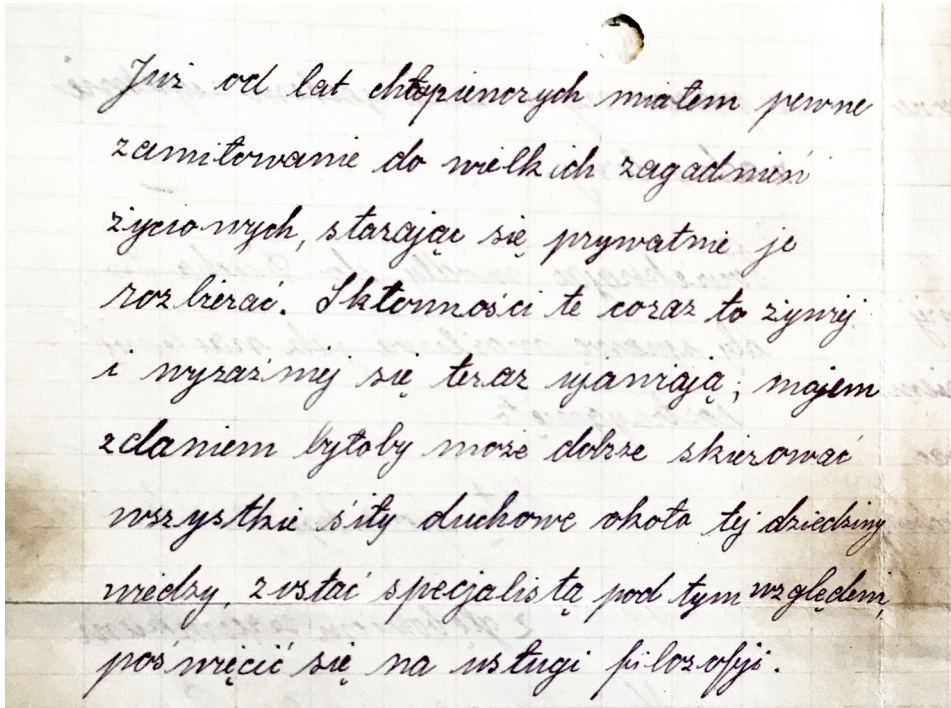 Już od lat chłopienczych miałem pewne
zamiłowanie do wielkich zagadnień
życiowych, starając się prywatnie je
rozbierać. Skłonności te coraz to żywiej
i wyraźniej się teraz ujawiają; mojem
zdaniem byłoby może dobrze skierować
wszystkie siły duchowe około tej dziedziny
wiedzy, zostać specjalistą pod tym względem,
poświęcić się na usługi filozofji.